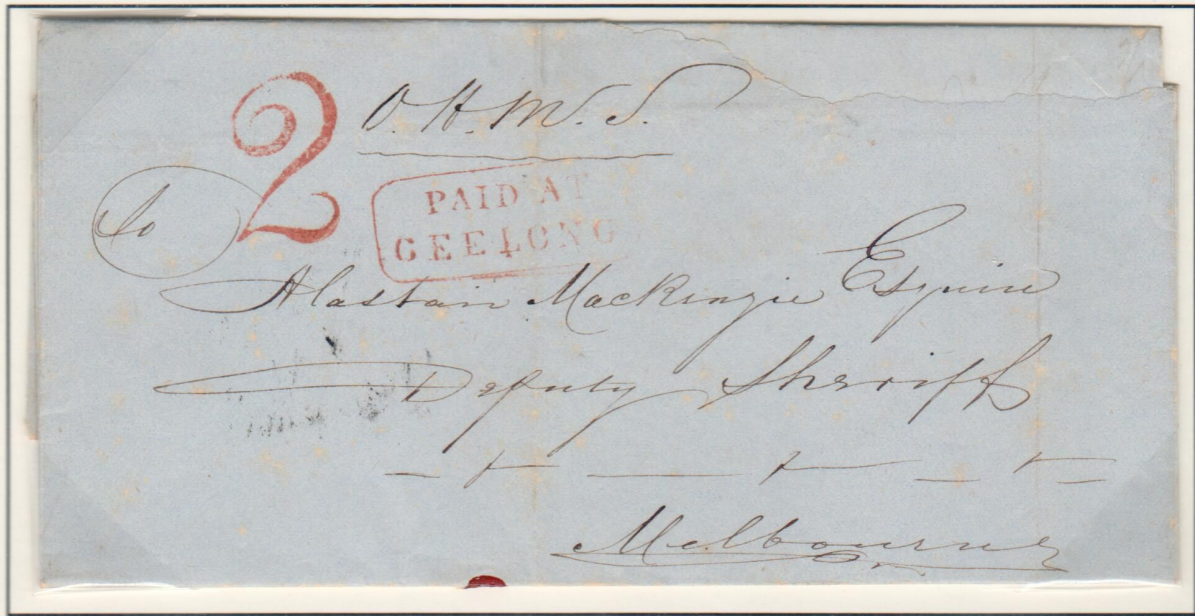 2
O.H.M.S.
PAID AT
GEELONG
To
Alastair Mackenzie Esquire
Deputy Sheriff
Melbourne